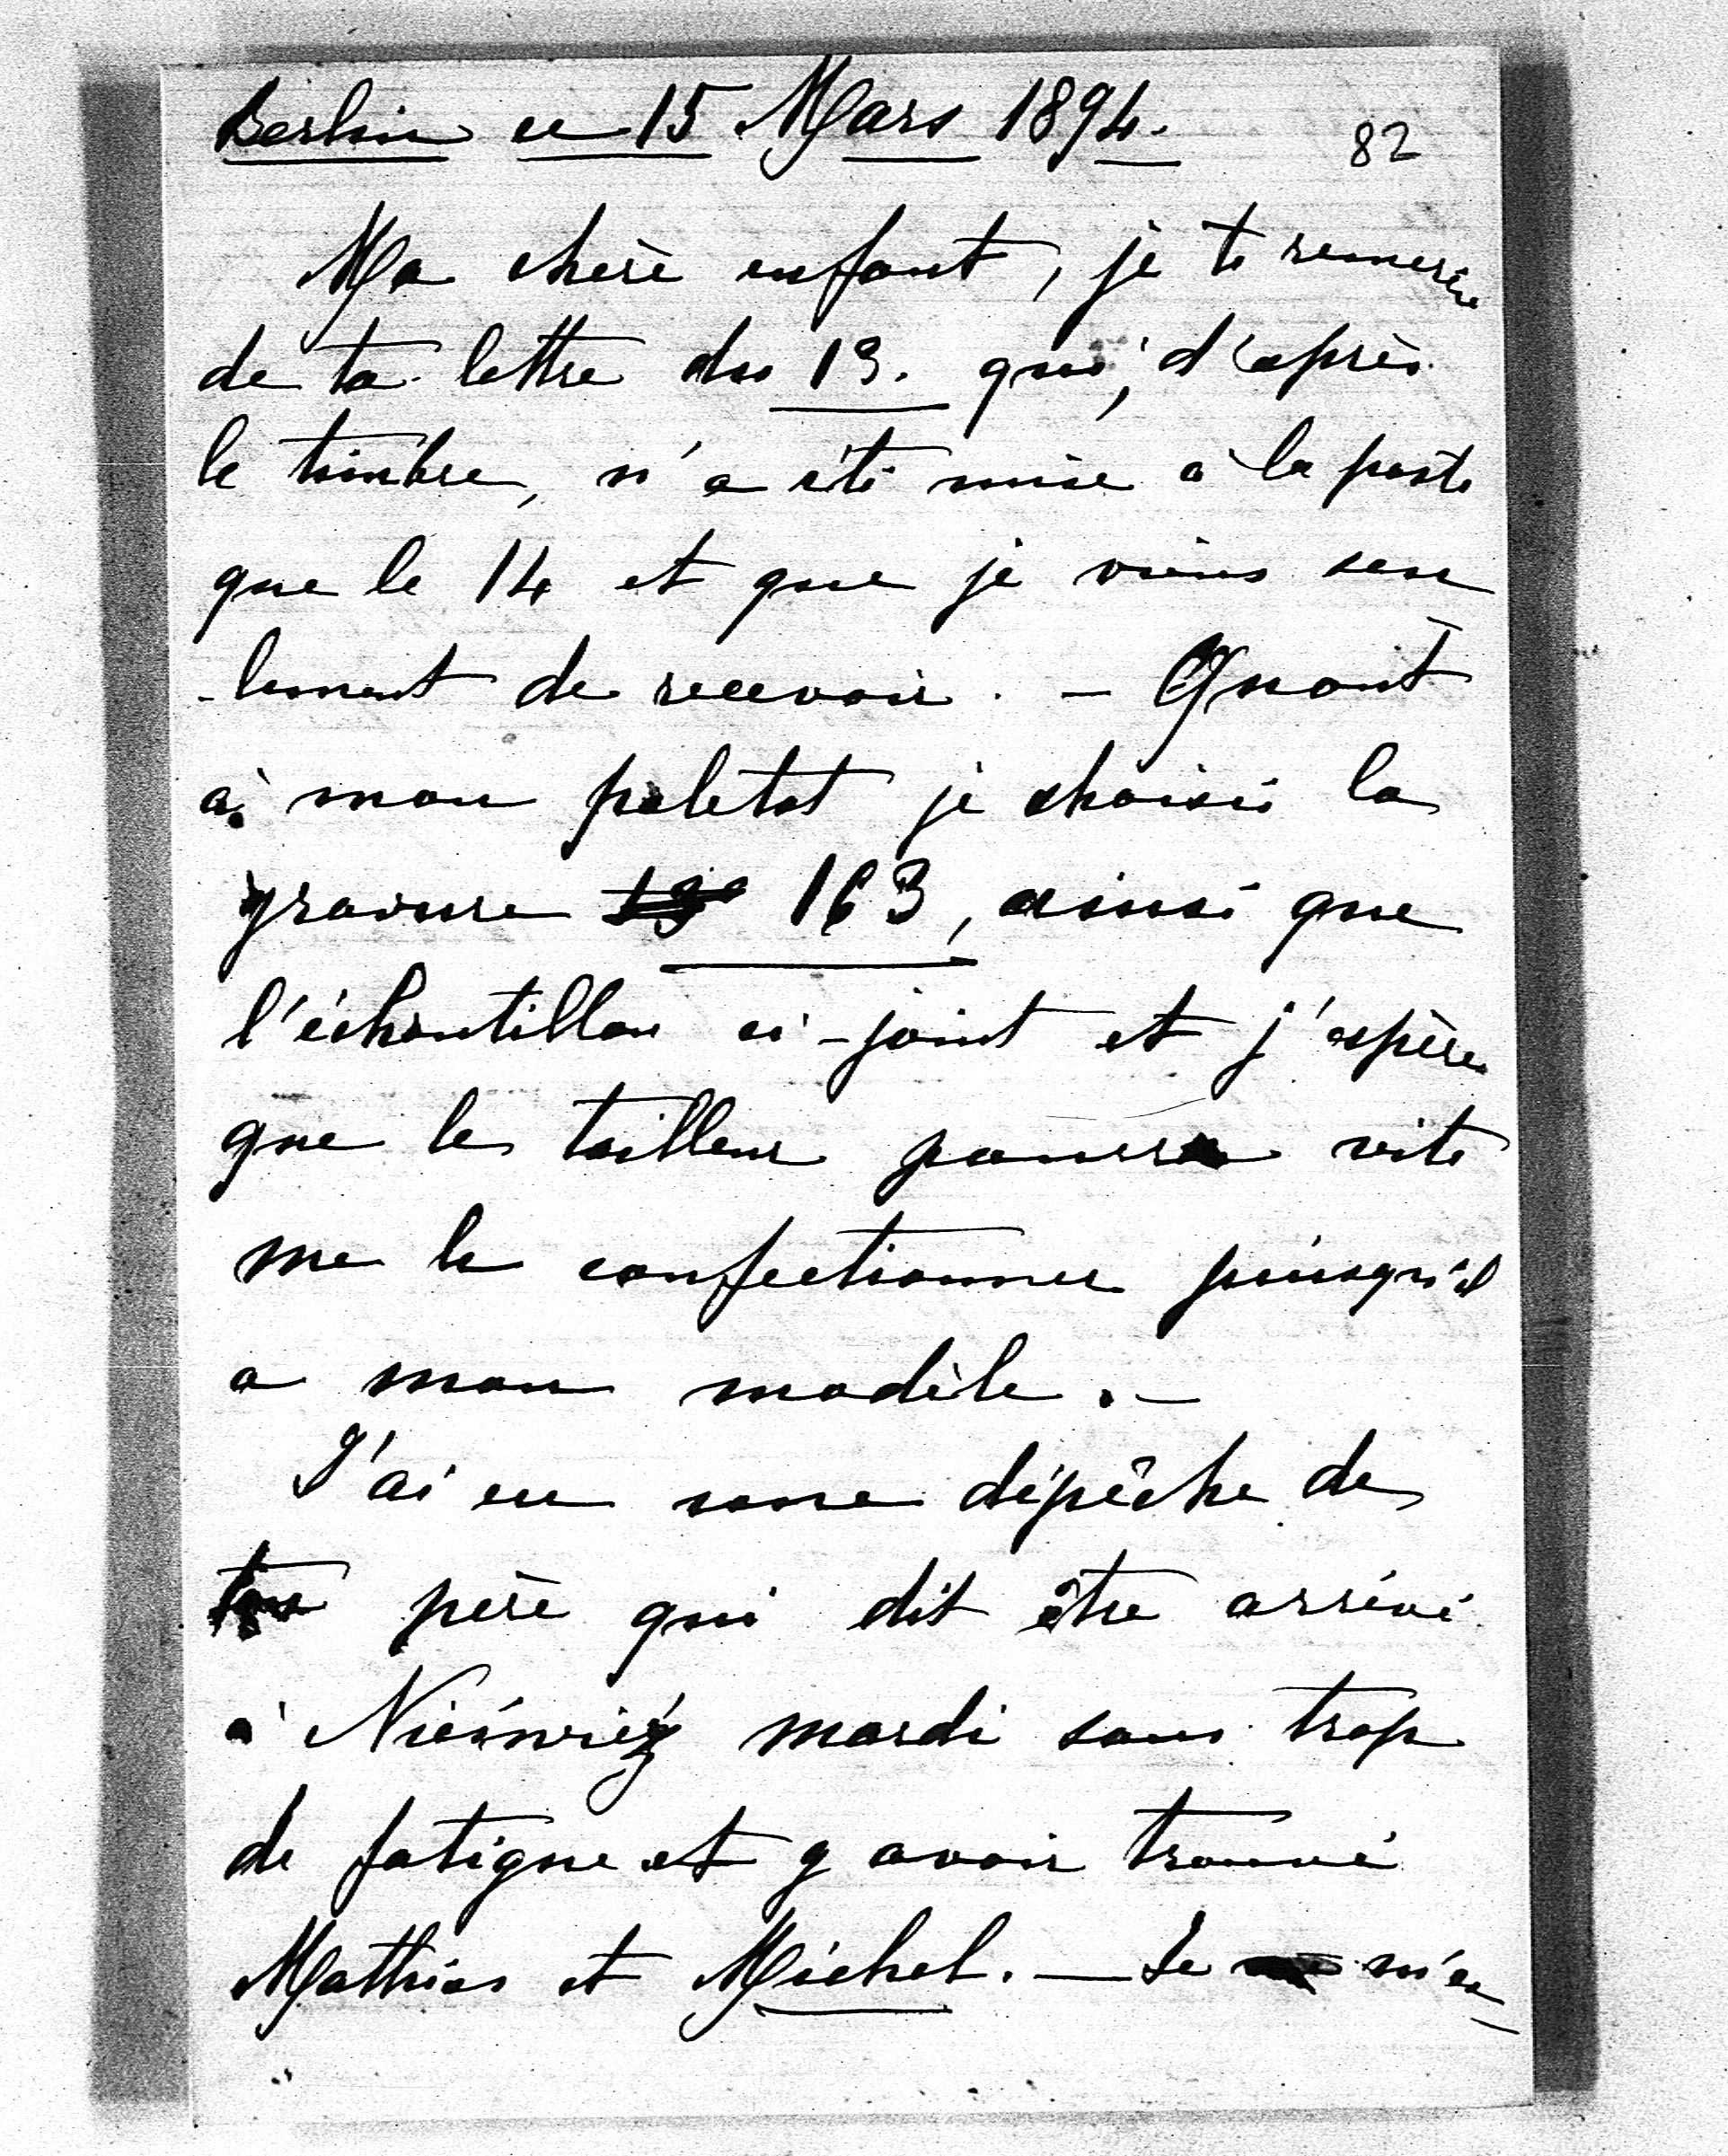 Berlin ce 15 Mars 1894.
82
Ma chère enfant, je te remercie
de ta lettre du 13. qui, d'après
le timbre, n'a été mise à la poste
que le 14 et que je viens seu
-lement de recevoir. – Quant
à mon paletot je choisis la
gravure 163, ainsi que
l'échantillon ci-joint et j'espère
que le tailleur pourra vite
me le confectionner puisqu'il
a mon modèle. –
J'ai eu une dépêche de
ton père qui dit être arrivé
à Nieświez mardi sans trop
de fatigue et y avoir trouvé
Mathias et Michel. — Je m'en